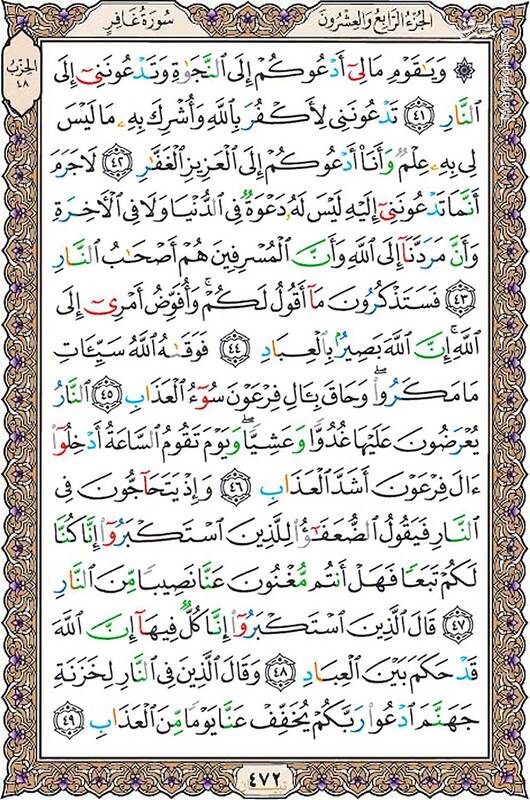 الجُزْءُ الرَّابِعُ وَالعِشْرُونَ سُورَةُ غَافِرٍ
الحِزْبُ ٤٨
۞ وَيَٰقَوْمِ مَا لِىٓ أَدْعُوكُمْ إِلَى ٱلنَّجَوٰةِ وَتَدْعُونَنِىٓ إِلَى
ٱلنَّارِ ٤١ تَدْعُونَنِى لِأَكْفُرَ بِٱللَّهِ وَأُشْرِكَ بِهِۦ مَا لَيْسَ
لِى بِهِۦ عِلْمٌ وَأَنَا۠ أَدْعُوكُمْ إِلَى ٱلْعَزِيزِ ٱلْغَفَّٰرِ ٤٢ لَا جَرَمَ
أَنَّمَا تَدْعُونَنِىٓ إِلَيْهِ لَيْسَ لَهُۥ دَعْوَةٌ فِى ٱلدُّنْيَا وَلَا فِى ٱلْءَاخِرَةِ
وَأَنَّ مَرَدَّنَآ إِلَى ٱللَّهِ وَأَنَّ ٱلْمُسْرِفِينَ هُمْ أَصْحَٰبُ ٱلنَّارِ
٤٣ فَسَتَذْكُرُونَ مَآ أَقُولُ لَكُمْ ۚ وَأُفَوِّضُ أَمْرِىٓ إِلَى
ٱللَّهِ ۚ إِنَّ ٱللَّهَ بَصِيرٌۢ بِٱلْعِبَادِ ٤٤ فَوَقَىٰهُ ٱللَّهُ سَيِّـَٔاتِ
مَا مَكَرُوا۟ ۖ وَحَاقَ بِـَٔالِ فِرْعَوْنَ سُوٓءُ ٱلْعَذَابِ ٤٥ ٱلنَّارُ
يُعْرَضُونَ عَلَيْهَا غُدُوًّا وَعَشِيًّا ۖ وَيَوْمَ تَقُومُ ٱلسَّاعَةُ أَدْخِلُوٓا۟
ءَالَ فِرْعَوْنَ أَشَدَّ ٱلْعَذَابِ ٤٦ وَإِذْ يَتَحَآجُّونَ فِى
ٱلنَّارِ فَيَقُولُ ٱلضُّعَفَٰٓؤُا۟ لِلَّذِينَ ٱسْتَكْبَرُوٓا۟ إِنَّا كُنَّا
لَكُمْ تَبَعًا فَهَلْ أَنتُم مُّغْنُونَ عَنَّا نَصِيبًا مِّنَ ٱلنَّارِ
٤٧ قَالَ ٱلَّذِينَ ٱسْتَكْبَرُوٓا۟ إِنَّا كُلٌّ فِيهَآ إِنَّ ٱللَّهَ
قَدْ حَكَمَ بَيْنَ ٱلْعِبَادِ ٤٨ وَقَالَ ٱلَّذِينَ فِى ٱلنَّارِ لِخَزَنَةِ
جَهَنَّمَ ٱدْعُوا۟ رَبَّكُمْ يُخَفِّفْ عَنَّا يَوْمًا مِّنَ ٱلْعَذَابِ ٤٩
٤٧٢